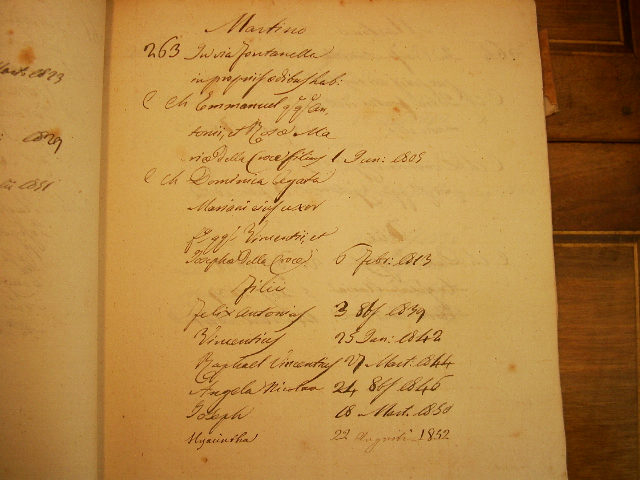 Mart. 1823
1829
1851
Martino
263 In via Fontanella
in propriis ædibus hab:
C Ch Emmanuel qq: An,
tonii, et Rosæ Ma
riæ Della Croce filius 1 Jun: 1805
C Ch Dominica Agata
Mariani ejus uxor
fa qq: Vincentii, et
Josepha Della Croce 6 Febr: 1813
Filii
Felix Antonius 3 8bf 1839
Vincentius 25 Jan: 1842
Raphael Vincentius 27 Mart. 1844
Angela Nicolaa 24 8bf 1846
Joseph 18 Mart. 1850
Hyacintha 22 Augusti 1852